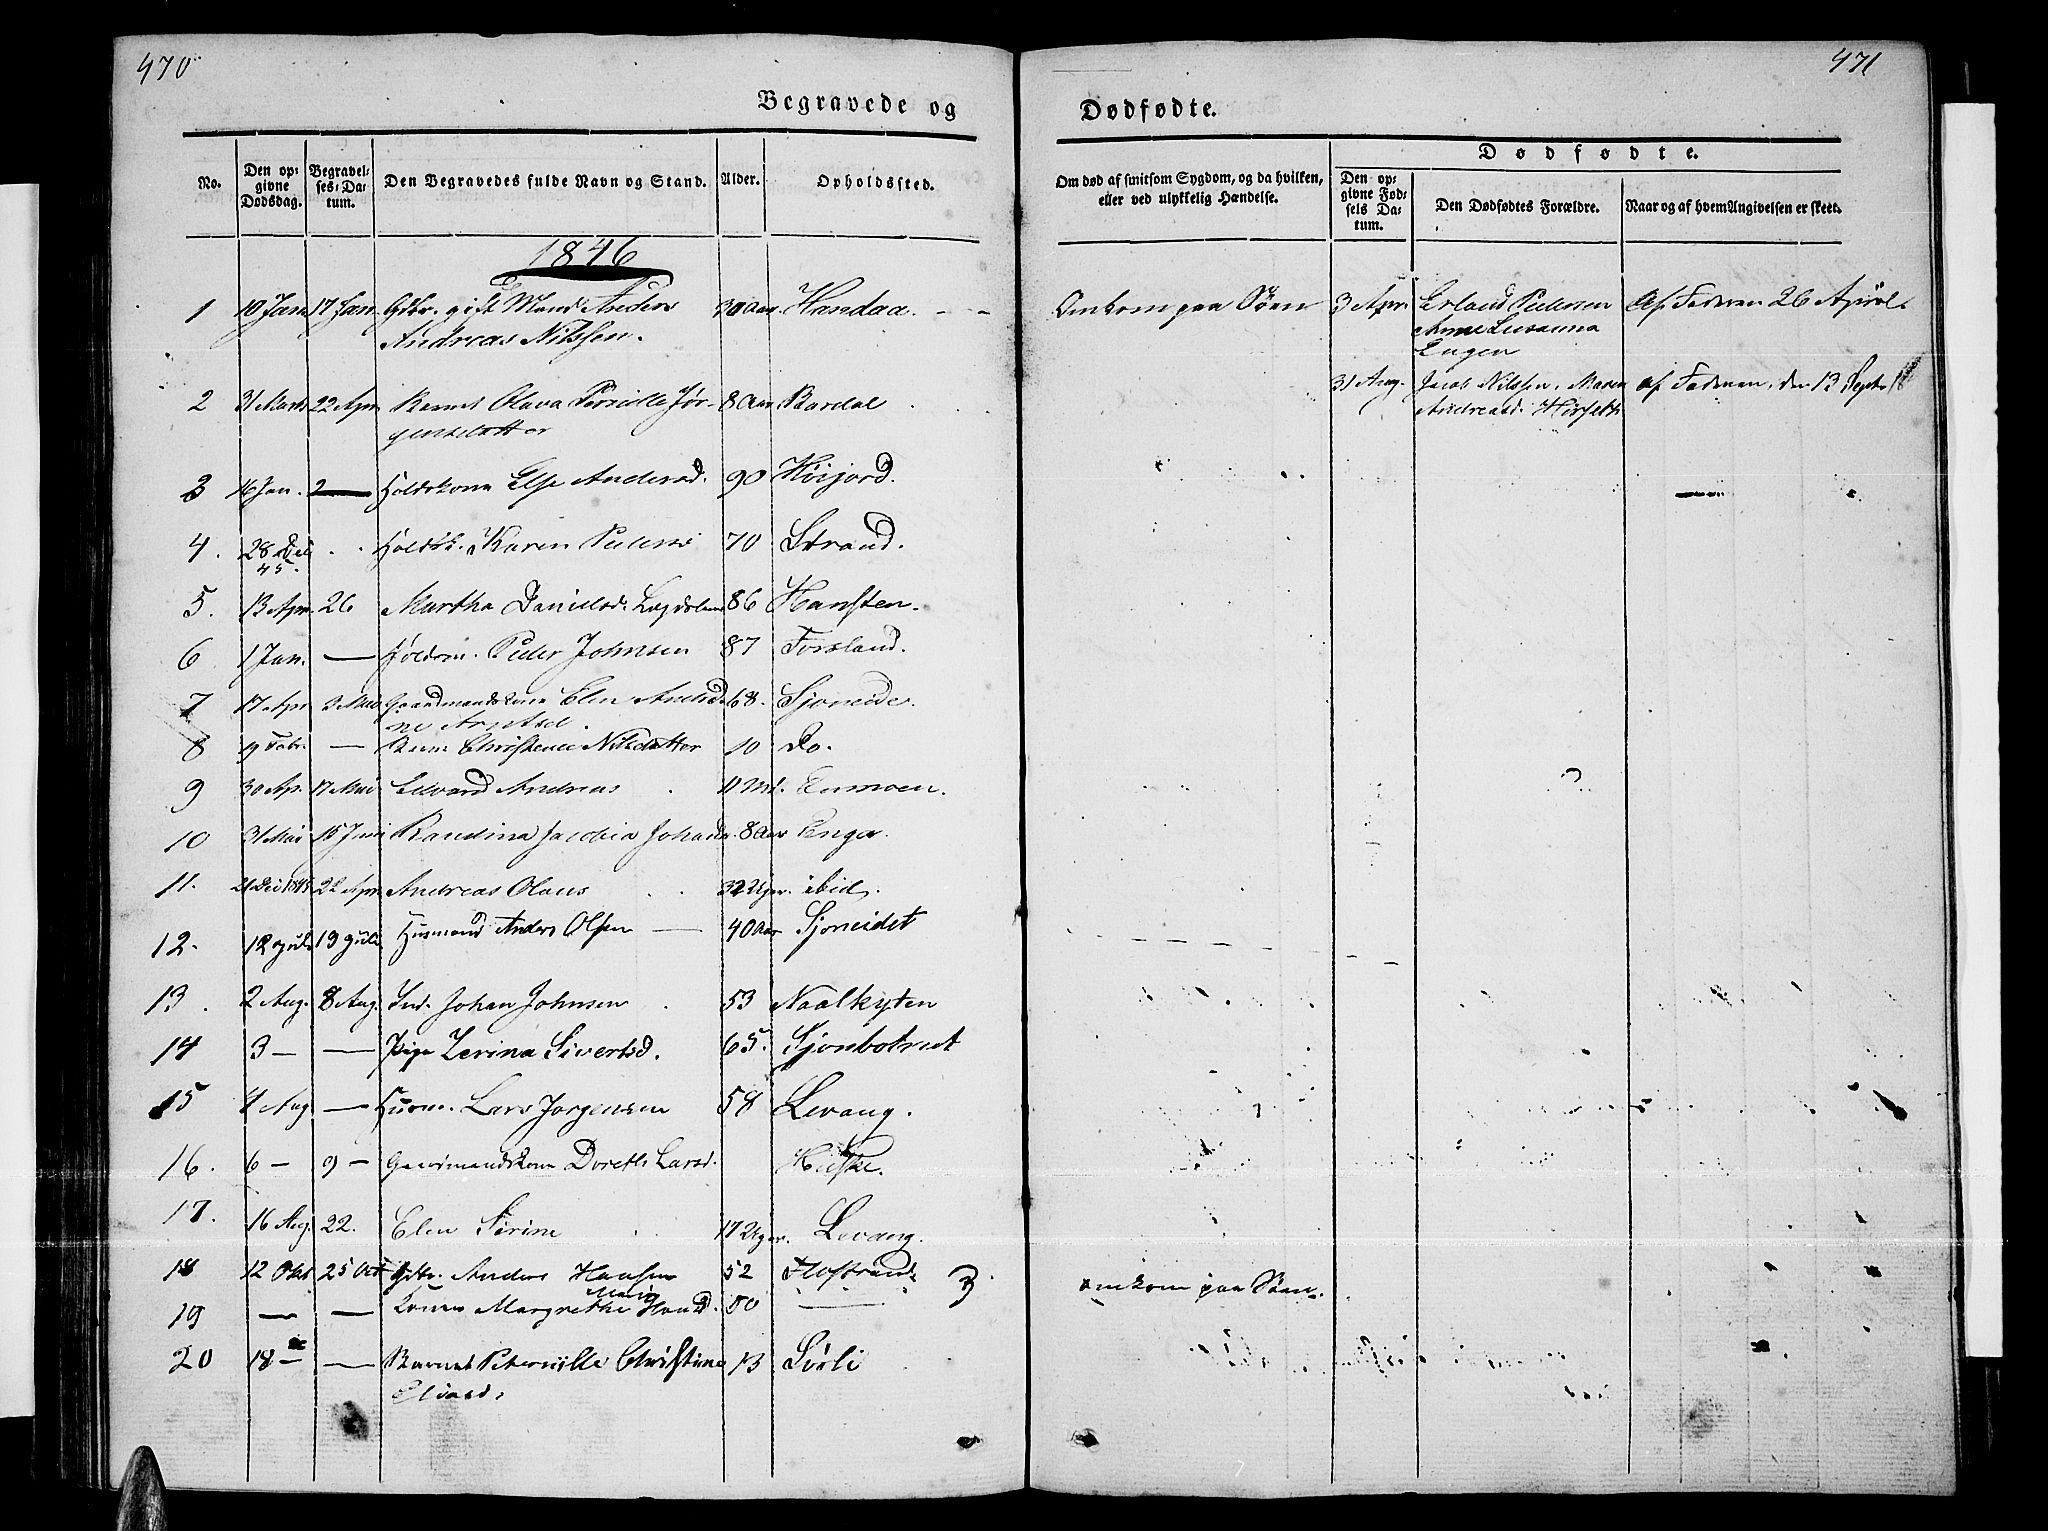 470
471
Begravede og
Dødfødte.
No.
Den opgivne Dødsdag.
Begravelses-Datum.
Den Begravedes fulde Navn og Stand.
Alder.
Opholdssted.
Om død af smitsom Sygdom, og da hvilken, eller ved ulykkelig Hændelse.
Dødfødte.
Den opgivne Fødsels Datum.
Den Dødfødtes Forældre.
Naar og af hvem Angivelsen er skeet.
1846
1 10 Jan 17 Jan Gbr. gift Mand Anders 30 Aar Handaa. Omkom paa Søen 3 Apr. Erland Pedersen af Faderen 26 April
Andreas Nilssen. Anne Susanna
Engen
31 Aug. Jacob Nilssen, Maren af Faderen, den 13 Sept.
2 31 Marts 22 Apr Barnet Olava Pernille Jør- 8 Aar Bardal Andreasd.
gensdatter
3 16 Jan. 2 Holdskone Else Andersd. 90 Høijord.
4. 28 Dec 45. Holdsk. Karen Peders 70 Strand.
5. 13 Apr. 26 Martha Danielsd. 86 Hansten.
6 1 Jan. — Peder Johnsen 87 Forsland.
7 17 Apr 3 Mai Gaardmandskone Elen 68. Sjoneide.
8 9 Febr. — Barn Christence Nilsdatter 10 Do.
9 30 Ap. 17 Mai Edvard Andreas 11 Md.
10 31 Mai 15 Juni Jacobia 8 Aar Enga.
11. 21 Dec 1845 22 Apr Andreas Olaus 32 Uger. ibid.
12. 12 Juli 19 Juli Husmand Anders Olsen — 40 Aar Sjoneidet
13. 2 Aug. 8 Aug. Ind. Johan Johnsen 53 Naalkyten
14 3 — — Pige Zerina Sivertsd. 65. Sjonbotnet
15 4 Aug — Husm. Lars Jørgensen 58 Levang.
16. 6 — 9 — Gaardmandskone Doreth Larsd.
17. 16 Aug. 22. Elen Sirine 17 Uger. Levang.
18 12 Okt 25 Oct Gbr. Anders Hansen 52 Flostrand 3. omkom paa Søen.
19 — — Konen Margrethe Marie Hansd. 50 —
20 18 — — Barnet Peternille Christine 13 Sørli